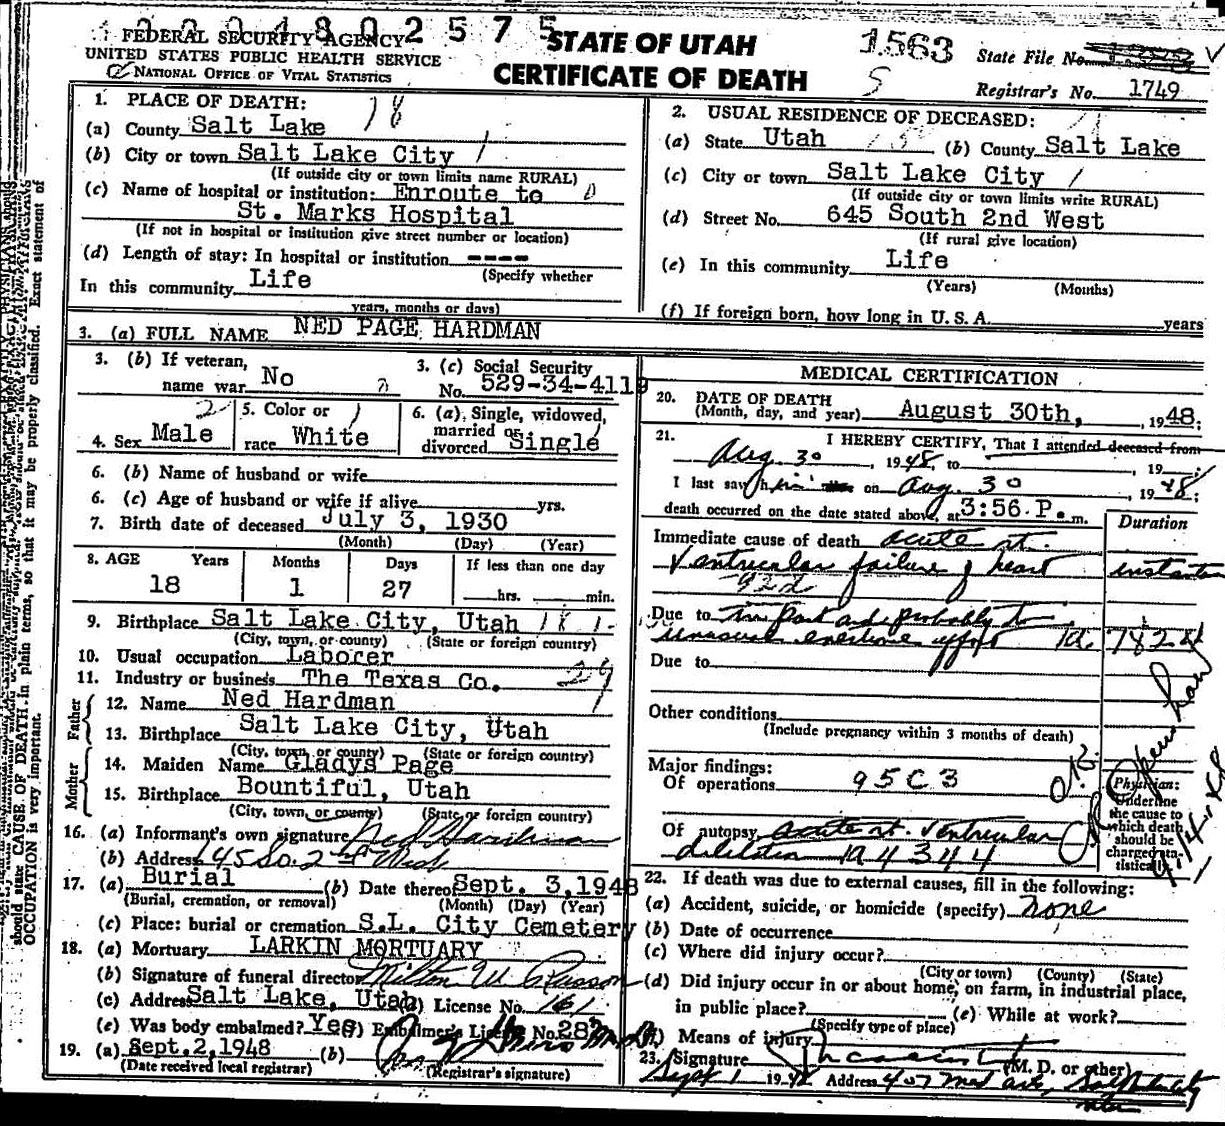 2 2 0 4 8 0 2 5 7 5
FEDERAL SECURITY AGENCY
UNITED STATES PUBLIC HEALTH SERVICE
NATIONAL OFFICE OF VITAL STATISTICS
STATE OF UTAH
CERTIFICATE OF DEATH
1563
5
State File No.
Registrar's No. 1749
1. PLACE OF DEATH: 18
(a) County Salt Lake
(b) City or town Salt Lake City 1
(If outside city or town limits name RURAL)
(c) Name of hospital or institution: Enroute to 0
St. Marks Hospital
(If not in hospital or institution give street number or location)
(d) Length of stay: In hospital or institution ----
(Specify whether
In this community Life
years, months or days)
2. USUAL RESIDENCE OF DECEASED:
(a) State Utah (b) County Salt Lake
(c) City or town Salt Lake City 1
(If outside city or town limits write RURAL)
(d) Street No. 645 South 2nd West
(If rural give location)
(e) In this community Life
(Years) (Months)
(f) If foreign born, how long in U. S. A. years
3. (a) FULL NAME NED PAGE HARDMAN
3. (b) If veteran,
name war No
3. (c) Social Security
No. 529-34-4119
4. Sex Male 2
5. Color or
race White 1
6. (a) Single, widowed,
married or
divorced Single
6. (b) Name of husband or wife
6. (c) Age of husband or wife if alive yrs.
7. Birth date of deceased July 3, 1930
(Month) (Day) (Year)
8. AGE Years Months Days If less than one day
18 1 27 hrs. min.
9. Birthplace Salt Lake City, Utah 18 1
(City, town, or county) (State or foreign country)
10. Usual occupation Laborer
11. Industry or business The Texas Co. 29
Father
12. Name Ned Hardman
13. Birthplace Salt Lake City, Utah
(City, town, or county) (State or foreign country)
Mother
14. Maiden Name Gladys Page
15. Birthplace Bountiful, Utah
(City, town, or county) (State or foreign country)
16. (a) Informant's own signature Ned Hardman
(b) Address 645 So. 2nd West
17. (a) Burial (b) Date thereof Sept. 3, 1948
(Burial, cremation, or removal) (Month) (Day) (Year)
(c) Place: burial or cremation S.L. City Cemetery
18. (a) Mortuary LARKIN MORTUARY
(b) Signature of funeral director
(c) Address Salt Lake, Utah (d) License No. 161
(e) Was body embalmed? Yes (f) Embalmer's License No. 28
19. (a) Sept. 2, 1948 (b)
(Date received local registrar) (Registrar's signature)
MEDICAL CERTIFICATION
20. DATE OF DEATH
(Month, day, and year) August 30th, 1948;
21. I HEREBY CERTIFY, That I attended deceased from
Aug. 30, 1948, to , 19
I last saw him on Aug. 30, 1948;
death occurred on the date stated above, at 3:56 P. m.
Duration
Immediate cause of death acute rt.
Ventricular failure of heart
92d
Due to in part and probably to
unusual exertion effort
Due to
Other conditions
(Include pregnancy within 3 months of death)
Major findings:
Of operations 95C3
Of autopsy acute rt. ventricular
dilation
Physician:
Underline
the cause to
which death
should be
charged sta-
tistically.
22. If death was due to external causes, fill in the following:
(a) Accident, suicide, or homicide (specify) none
(b) Date of occurrence
(c) Where did injury occur?
(City or town) (County) (State)
(d) Did injury occur in or about home, on farm, in industrial place,
in public place? (e) While at work?
(Specify type of place)
(f) Means of injury
23. Signature
(M. D. or other)
Sept 1 1948 Address 407 Med arts, Salt Lake City
should state CAUSE OF DEATH in plain terms, so that it may be properly classified. Exact statement of
OCCUPATION is very important.